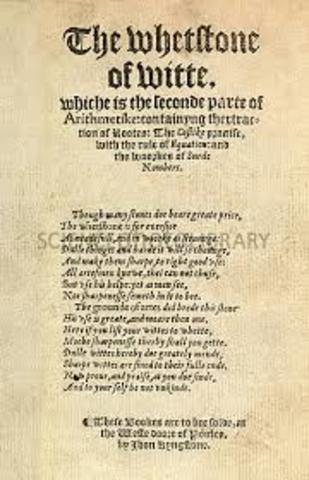 The whetstone
of witte,
whiche is the seconde parte of
Arithmetike: containyng thextrac-
tion of Rootes: The Coßike practise,
with the rule of Equation: and
the woorkes of Surde
Nombers.
Though many stones doe beare greate price,
The whetstone is for exersice
As neadefull, and in woorke as straunge:
Dulle thinges and harde it will so chaunge,
And make them sharpe, to right good vse:
All artesmen knowe, thei can not chuse,
But vse his helpe: yet as men see,
Noe sharpenesse semeth in it to bee.
The grounde of artes did brede this stone:
His vse is greate, and moare then one.
Here if you lift your wittes to whette,
Moche sharpenesse thereby shall you gette.
Dulle wittes hereby doe greately mende,
Sharpe wittes are fined to their fulle ende.
Now proue, and praise, as you doe finde,
And to your self be not vnkinde.
¶ These Bookes are to bee solde, at
the Weste doore of Poules,
by Jhon Kyngstone.
SCIENCE PHOTO LIBRARY